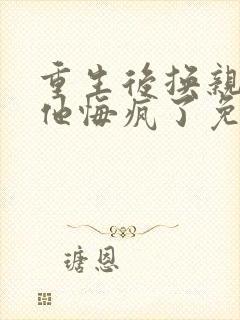 重生後換親
他悔瘋了免
瑭恩